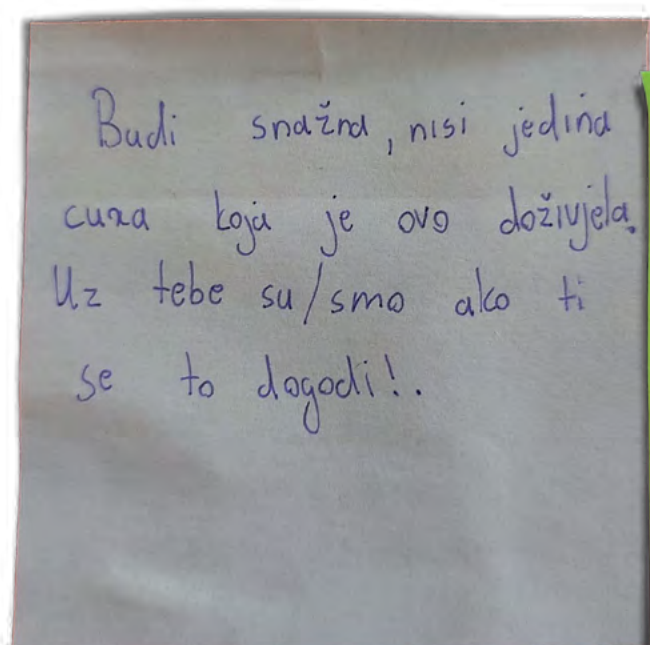 Budi snažna, nisi jedina
cura koja je ovo doživjela.
Uz tebe su/smo ako ti
se to dogodi!.